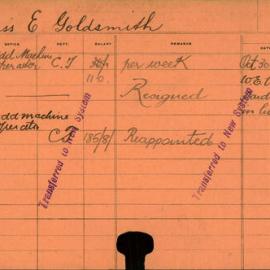 iss E Goldsmith
OFFICE DEPT. SALARY REMARKS
dd Machine
perator C.T per week Oct 30
110. Resigned
dd machine
per ator C.T 185/8/ Reappointed
Transferred to New System
Transferred to New System